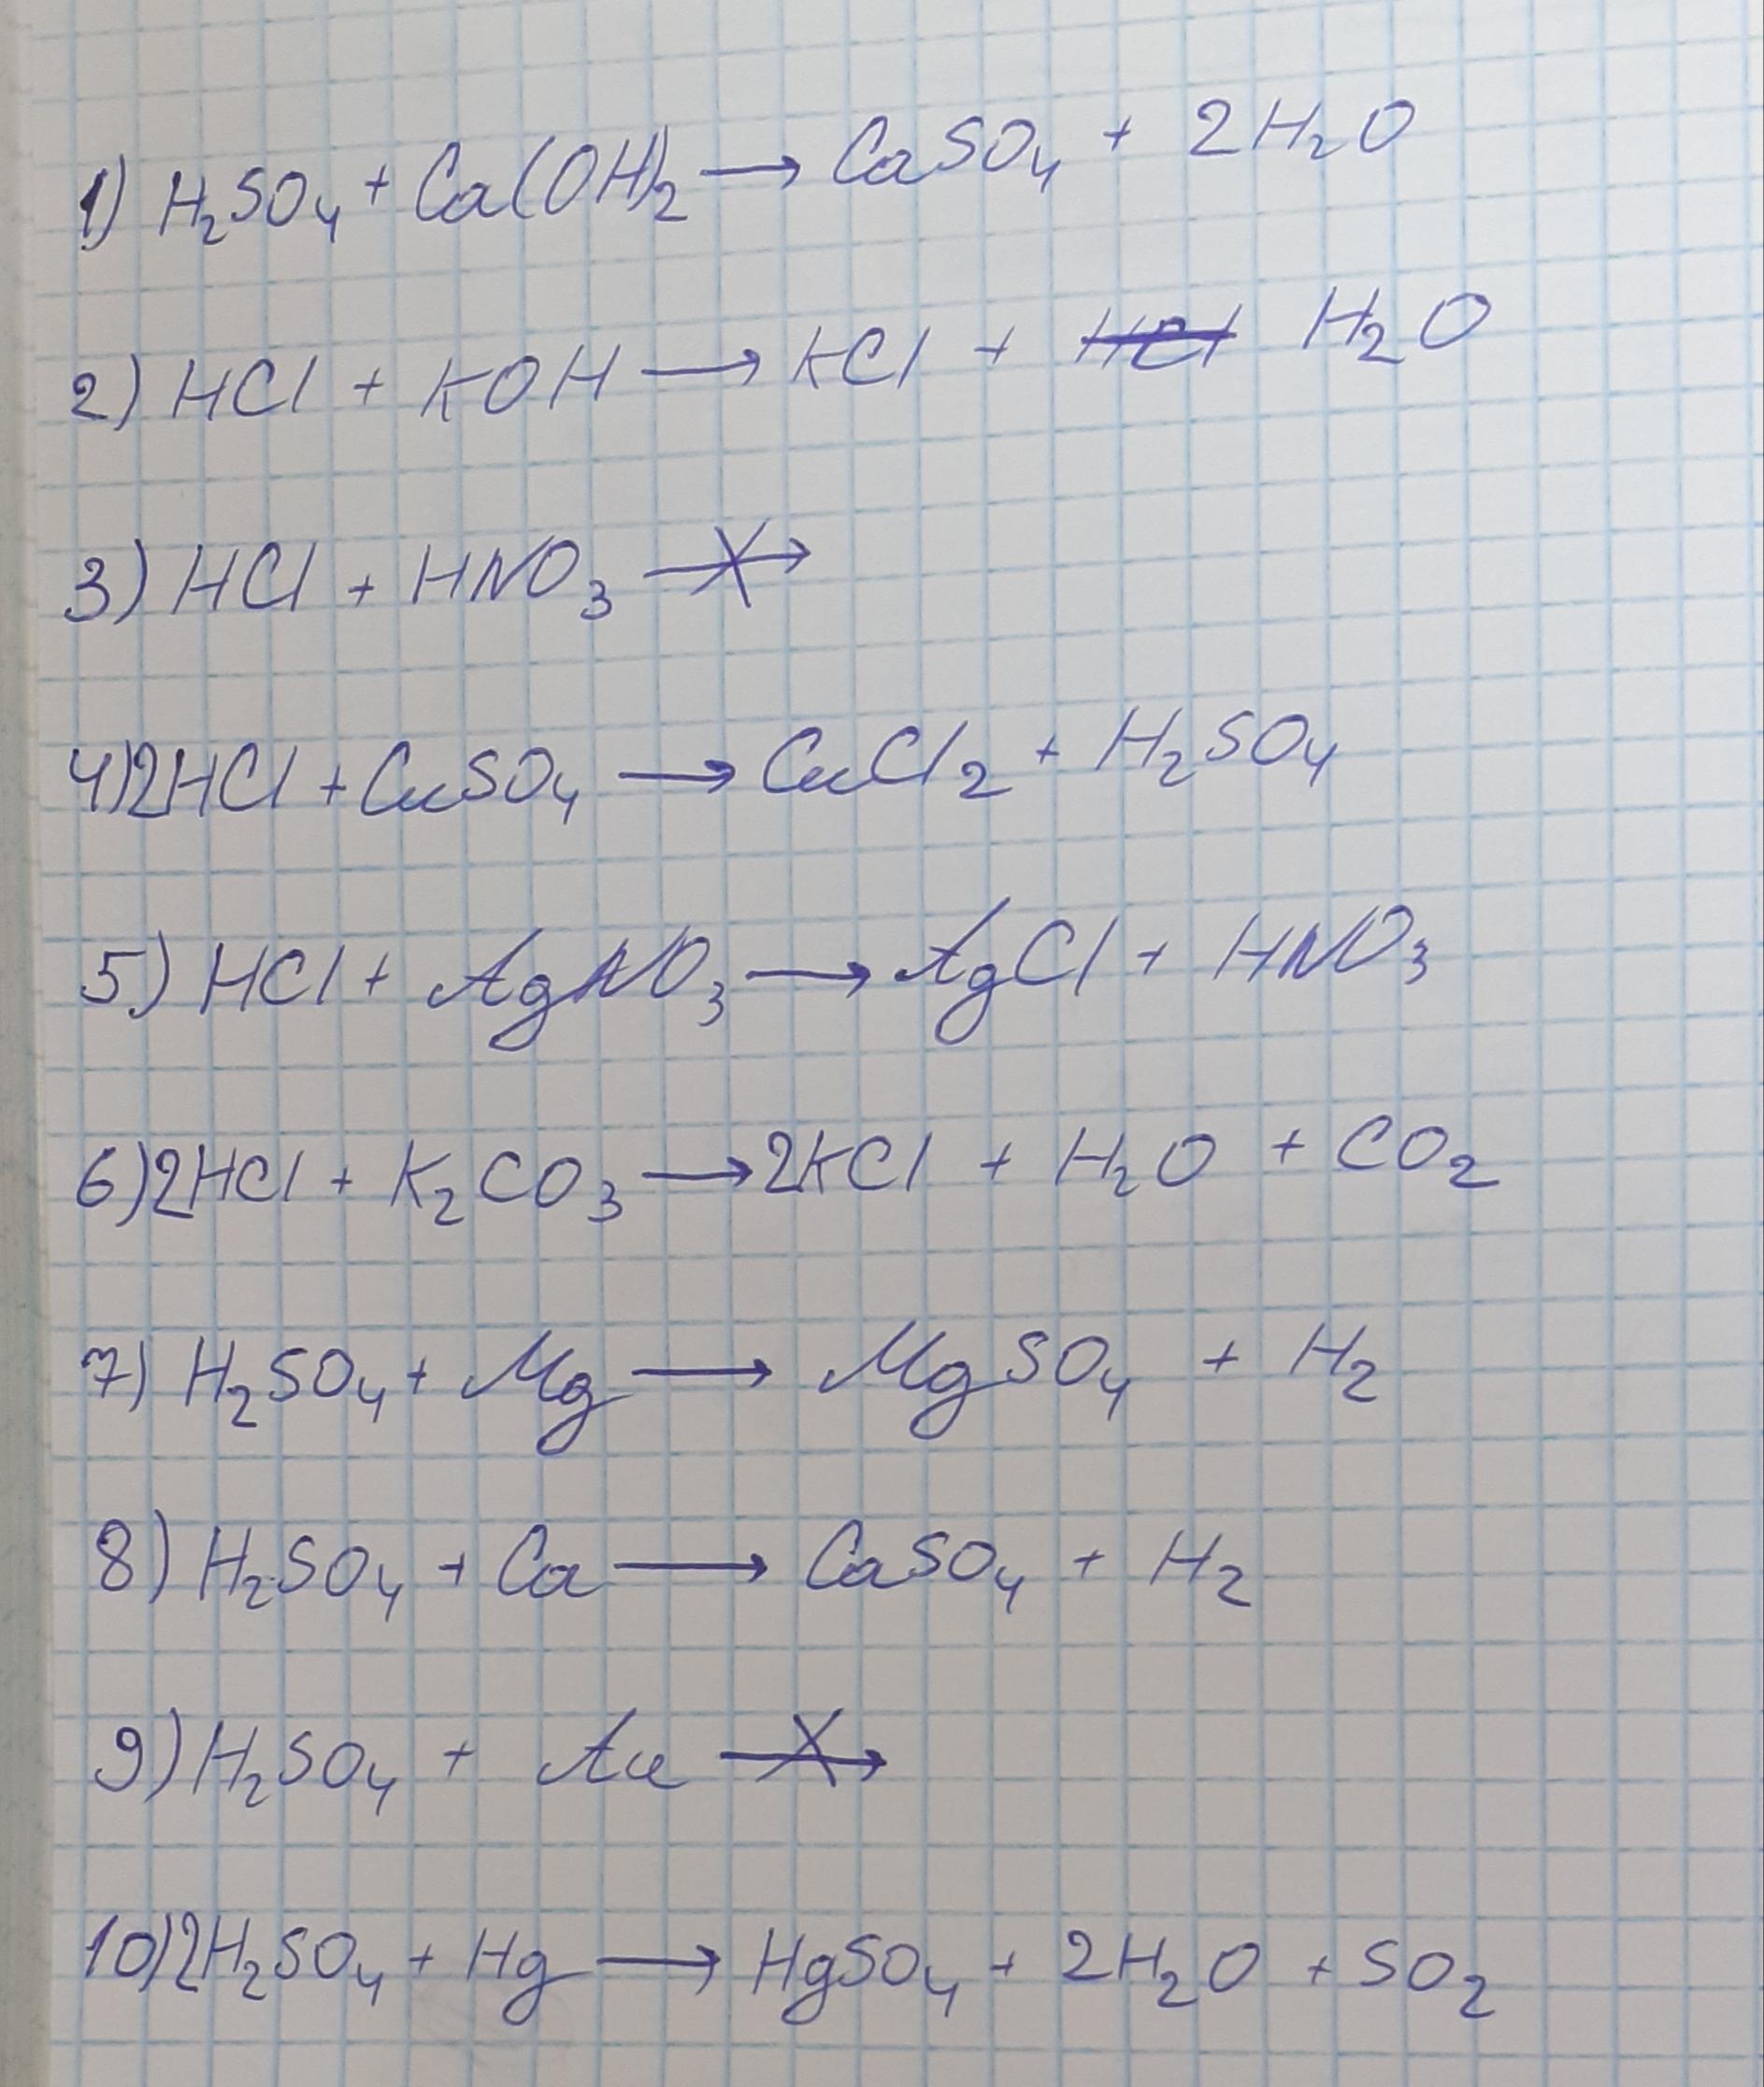 1) H₂SO₄ + Ca(OH)₂ → CaSO₄ + 2H₂O
2) HCl + KOH → KCl + ~~HCl~~ H₂O
3) HCl + HNO₃ ↛
4) 2HCl + CuSO₄ → CuCl₂ + H₂SO₄
5) HCl + AgNO₃ → AgCl + HNO₃
6) 2HCl + K₂CO₃ → 2KCl + H₂O + CO₂
7) H₂SO₄ + Mg → MgSO₄ + H₂
8) H₂SO₄ + Ca → CaSO₄ + H₂
9) H₂SO₄ + Au ↛
10) 2H₂SO₄ + Hg → HgSO₄ + 2H₂O + SO₂